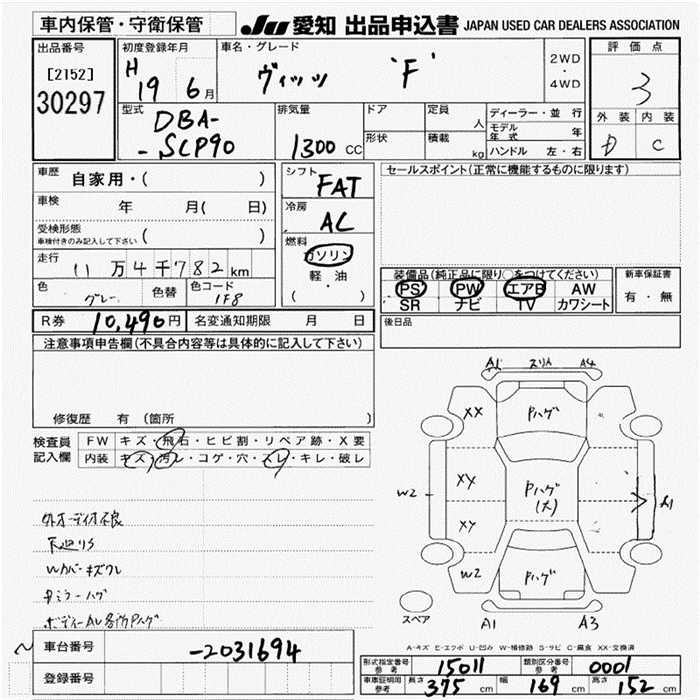 車内保管・守衛保管
JU 愛知 出品申込書 JAPAN USED CAR DEALERS ASSOCIATION
出品番号
[2152]
30297
初度登録年月
H 19 6月
車名・グレード
ヴィッツ 'F'
2WD
・
4WD
評価点
3
外装 内装
D C
型式
DBA-
-SCP90
排気量
1300 CC
ドア
形状
定員
人
積載
kg
ディーラー・並行
モデル年式 年
ハンドル 左・右
車歴
自家用・( )
車検
年 月( 日)
受検形態
車検付きのみ記入して下さい ( )
走行
11万4千782km
色
グレー
色替
色コード
1F8
シフト
FAT
冷房
AC
燃料
ガソリン
軽・油
( )
セールスポイント(正常に機能するものに限ります)
装備品(純正品に限り○をつけてください)
PS PW エアB AW
SR ナビ TV カワシート
新車保証書
有・無
後日品
R券 10,490円 名変通知期限 月 日
注意事項申告欄(不具合内容等は具体的に記入して下さい)
修復歴 有 (箇所 )
検査員
記入欄
FW キズ・飛石・ヒビ割・リペア跡・X要
内装 キズ・汚レ・コゲ・穴・スレ・キレ・破レ
外オーディオ不良
下廻りS
Wカバーキズワレ
ボディーAU各所Pハゲ
A1 スリキズ A4
XX Pハゲ
W2 XY Pハゲ
(大) A1
XY
W2 Pハゲ
スペア
A1 A3
A-キズ E-エクボ U-凹み W-補修跡 S-サビ C-腐食 XX-交換済
車台番号
-2031694
登録番号
形式指定番号
参考
15011
類別区分番号
参考
0001
車庫証明用
参考
長さ 375 cm 幅 169 cm 高さ 152 cm